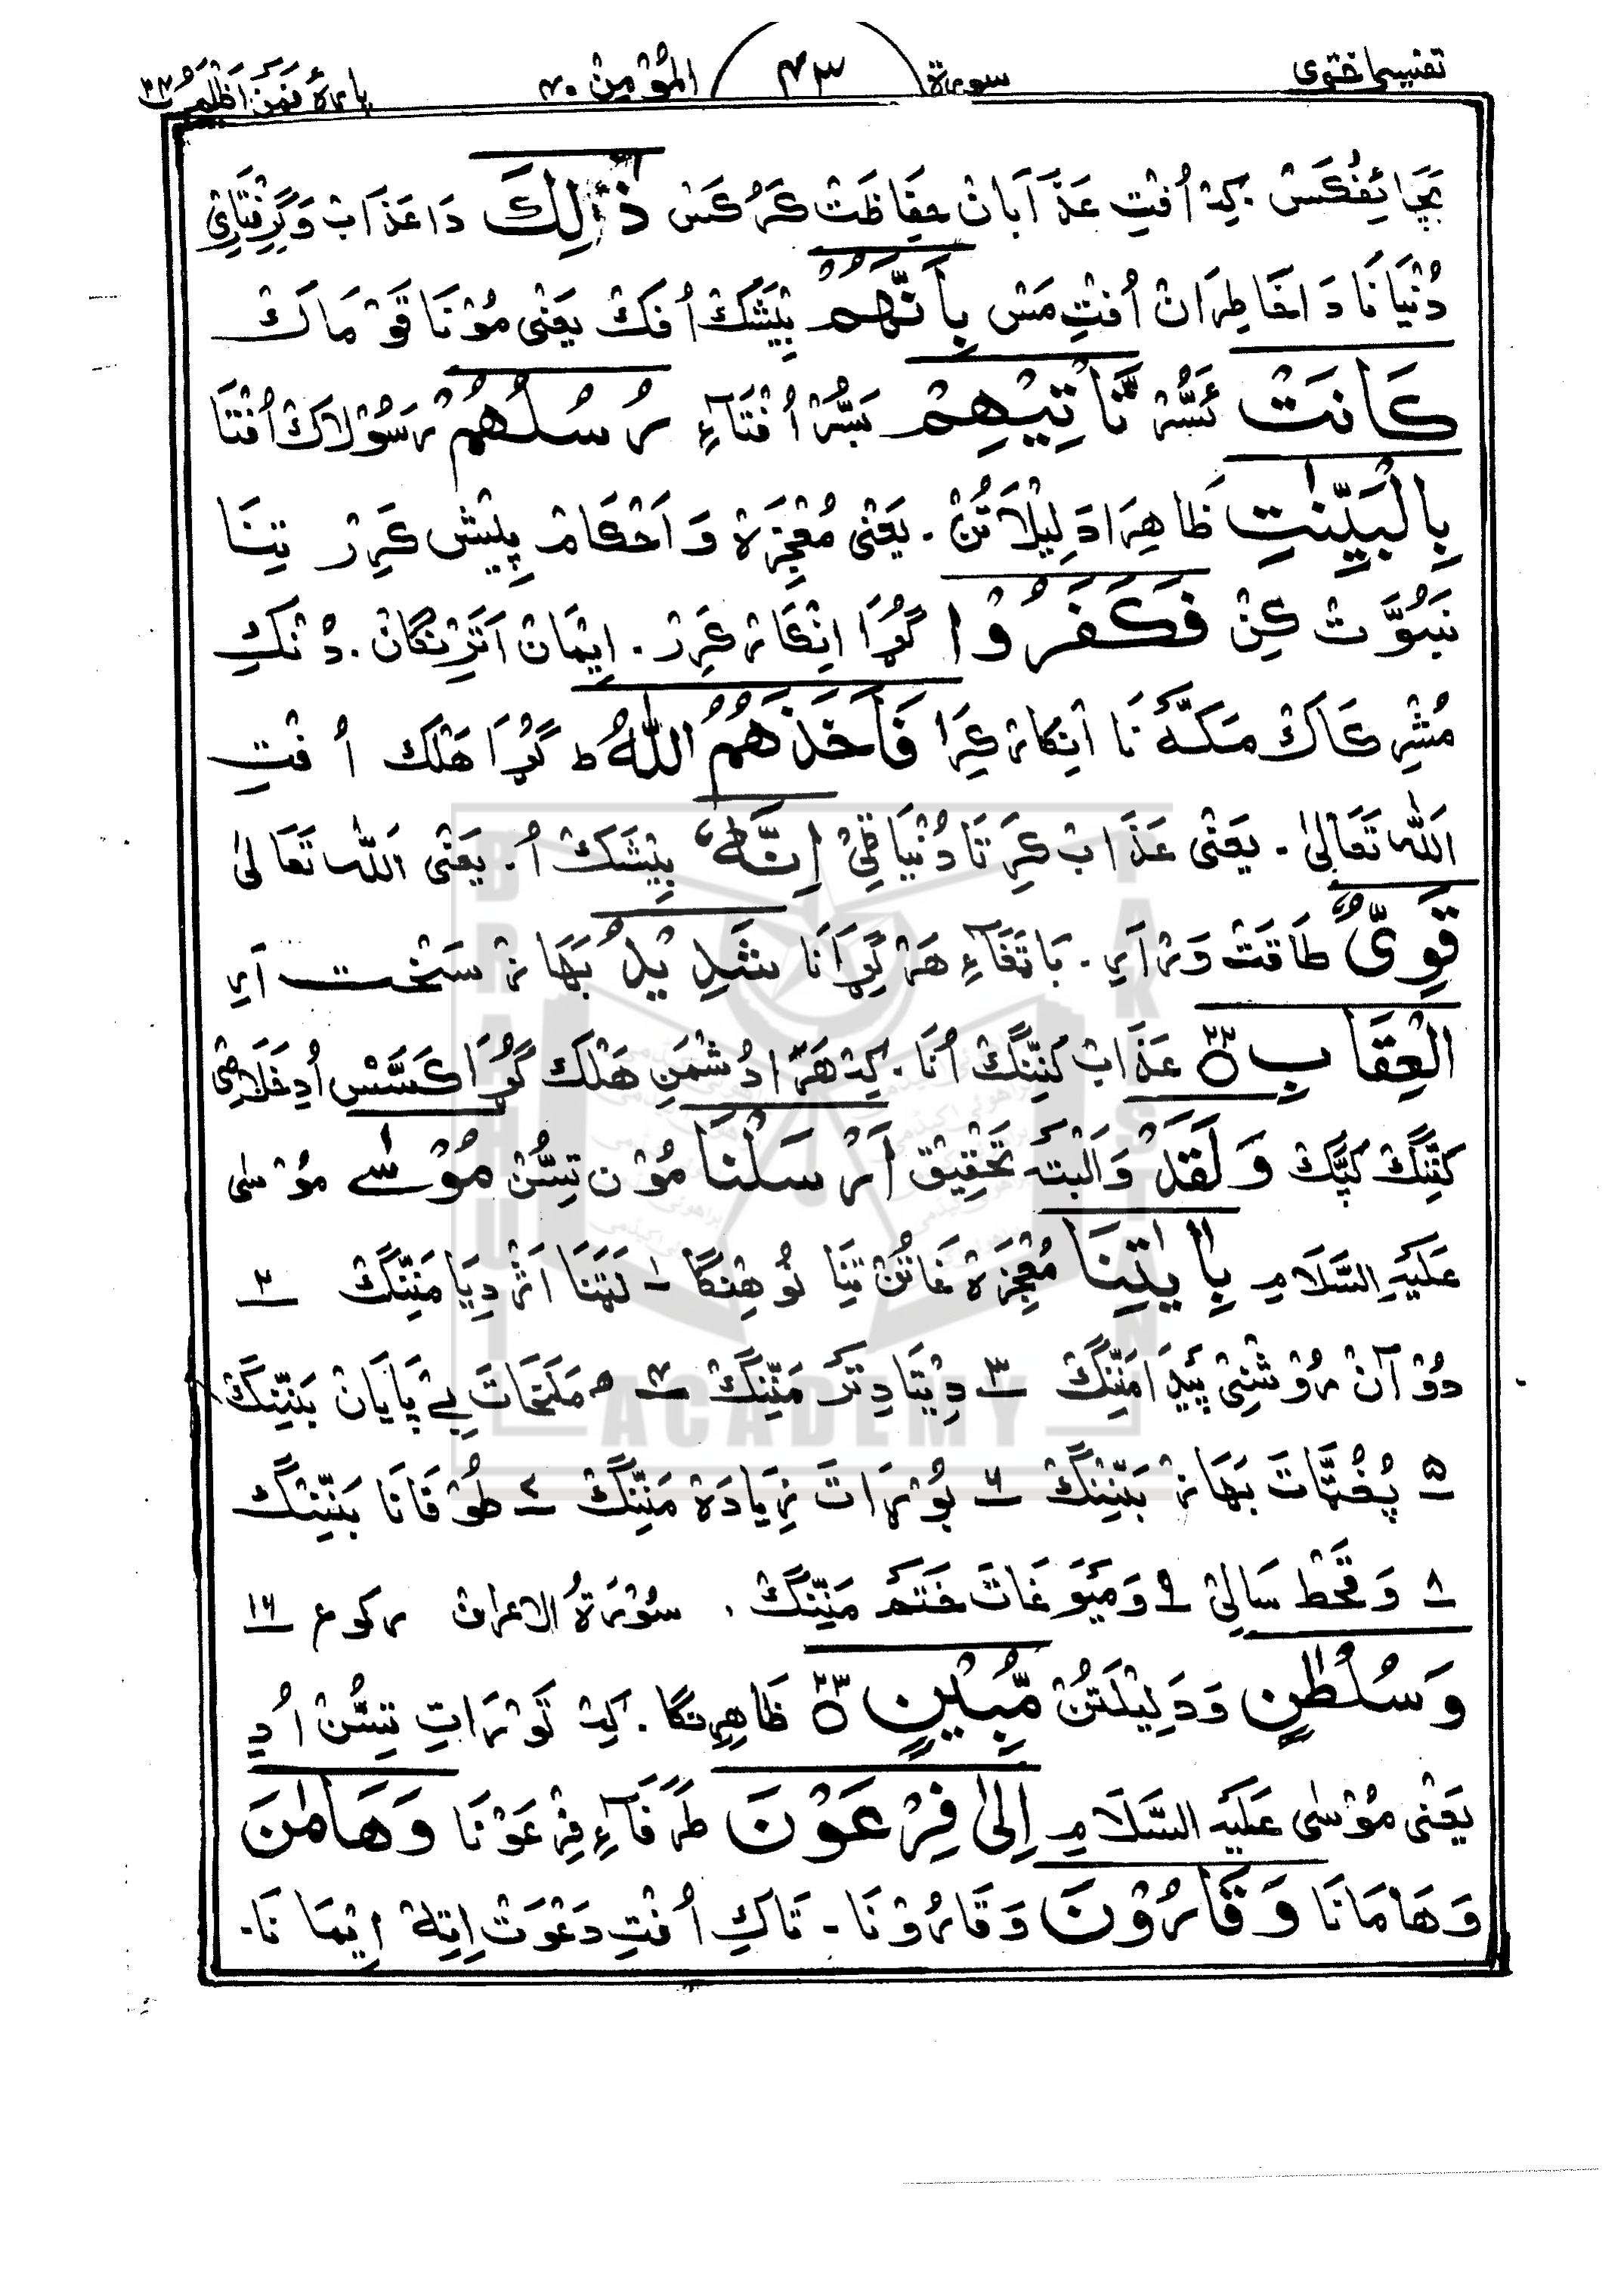 تفسیر اختری سورة ۴۳ المؤمن ۴۰ پارہ فمن اظلم ۲۴
بچائفکس. کہ اُفتِ عَذَابان حِفاظَت کَرُکَس ذٰلِكَ دَا عَذَاب وَ گِرِفتَارِی
دُنْیَانَا دَا خَاطِرَان اُفتِ مَس بِاَنَّهُمْ بِیْشَك اُفَك یَعْنٖی مُوْنَا قَوْمَاك
كَانَتْ ئَسُّر تَّاْتِیْهِمْ بَسُّر اُفْتَآءِ رُسُلُهُمْ رَسُوْلَاك اُفْتَا
بِالْبَیِّنٰتِ ظَاهِرَا دَلِیْلَاتُن. یَعْنٖی مُعْجِزَہ وَ اَحْکَام پِیْش کَرِر تِنَا
نَبُوَّت کِن فَكَفَرُوْا گُڑَا اِنْکَار کَرِر. اِیْمَان اَتَرِنگَان. دُنکِ
مُشْرِکَاك مَکَّهَ نَا اِنکَار کَرِرَا فَاَخَذَهُمُ اللّٰهُ ط گُڑَا هَلْك اُفْتِ
اَللّٰه تَعَالٰی. یَعْنٖی عَذَاب کَرِ تَا دُنْیَا ٹِی اِنَّهٗ بِیْشَك اُ. یَعْنٖی اَللّٰه تَعَالٰی
قَوِیٌّ طَاقَت وَر اَرِ. بَاتَفَآءِ هَر گِڑَانَا شَدِیْدُ بَهَاز سَخْت اَرِ
الْعِقَابِ ۝۲۲ عَذَاب کَنِّنگ اُنَا. کِہ هَرَا دُشْمَنِ هَلْك گُڑَا کَسَّس اُدِ خَلَاصِی
کَنِّنگ کَپَّك وَ لَقَدْ وَ اَلْبَتَّه تَحْقِیْق اَرْسَلْنَا مُوْن تِسُّن مُوْسٰے مُوْسٰی
عَلَیْهِ السَّلَام بِاٰیٰتِنَا مُعْجِزَہ غَاتُن تِنَا نُوْهِنگَا ۱ لَٹِنَا اَژْدِیَا مَنِّنگ ۲
دُوْ آن رُوْشَنِی پَیْدَا مَنِّنگ ۳ دِیْتَا دِتَر مَنِّنگ ۴ مَلَخَاتَ بے پَایَان بَنِّنگ
۵ پُغُٹَّاتَ بَهَاز بَنِّنگ ۶ بُوْرَاتَ زِیَادَہ مَنِّنگ ۷ طُوْفَانَا بَنِّنگ
۸ وَ قَحْط سَالِی ۹ وَ مِیْوَ غَاتَ خَتَم مَنِّنگ. سُوْرَةُ الاعراف رکوع ۱۶
وَ سُلْطٰنٍ وَ دَلِیْلَتُن مُّبِیْنٍ ۝۲۳ ظَاهِرنگَا. کِہ تَوْرَاتِ تِسُّن اُدِ
یَعْنٖی مُوْسٰی عَلَیْهِ السَّلَام اِلٰی فِرْعَوْنَ طَرَفَآءِ فِرْعَوْنَا وَ هَامٰنَ
وَ هَامَانَا وَ قَارُوْنَ وَ قَارُوْنَا. تَاكِ اُفتِ دَعْوَت اِتِهْ اِیْمَانَا.
BRAHUI
ACADEMY
PAKISTAN